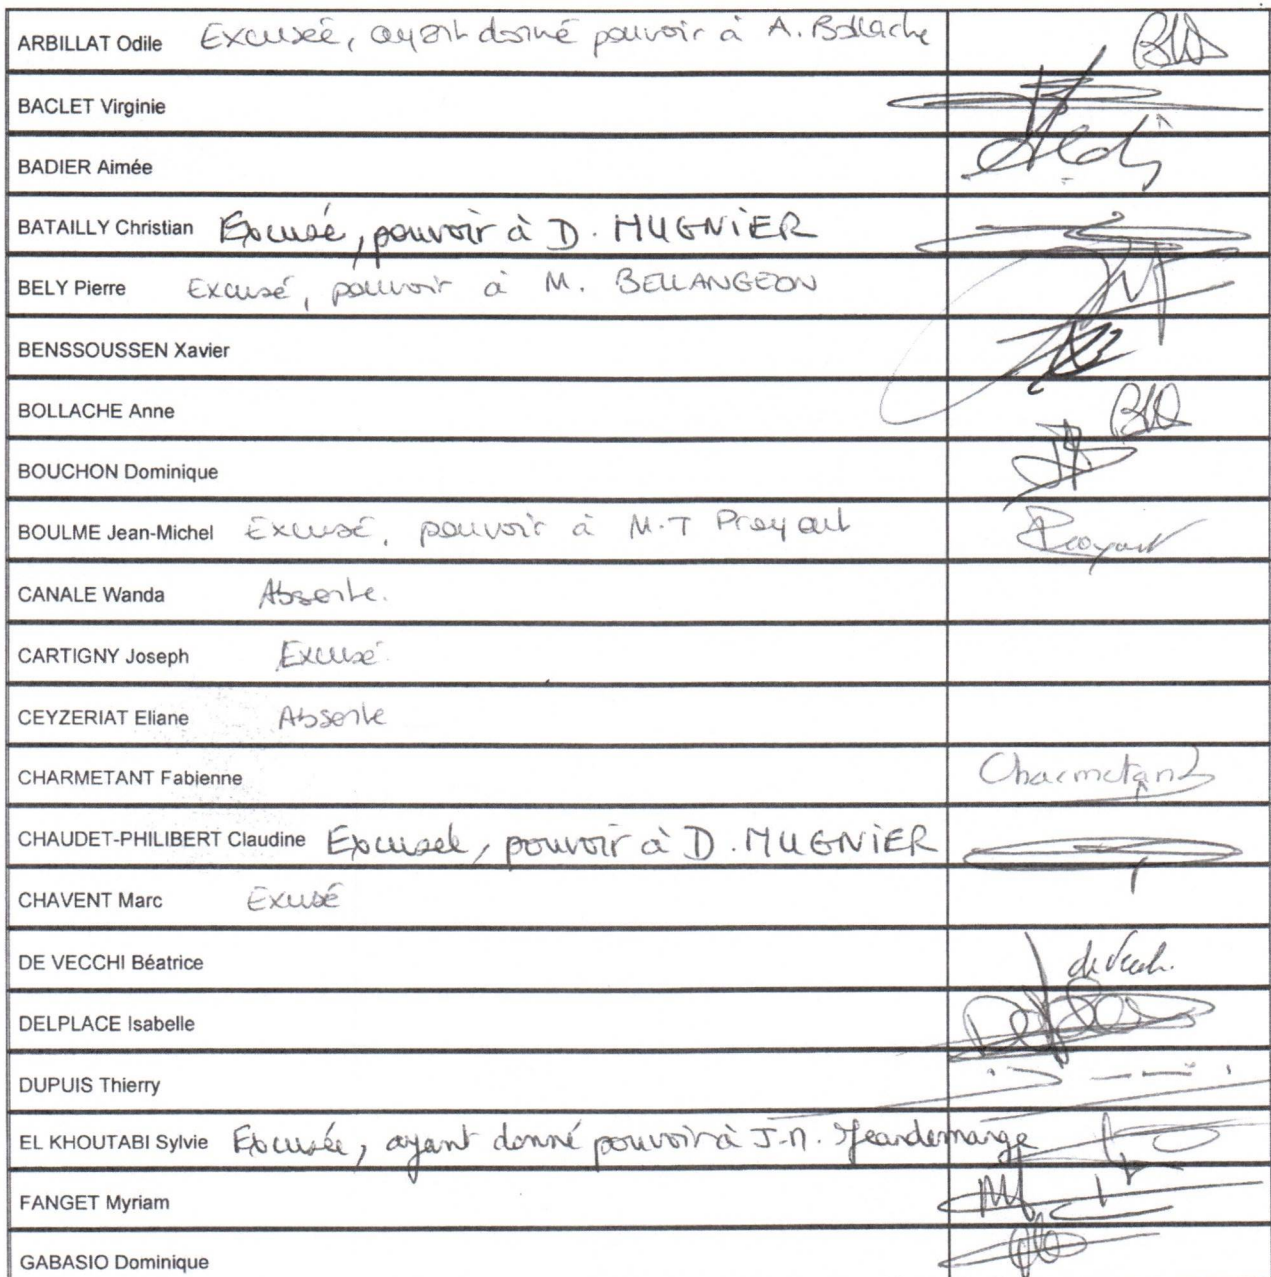 ARBILLAT Odile Excusée, ayant donné pouvoir à A. Bollache
BACLET Virginie
BADIER Aimée
BATAILLY Christian Excusé, pouvoir à D. MUGNIER
BELY Pierre Excusé, pouvoir à M. BELLANGEON
BENSSOUSSEN Xavier
BOLLACHE Anne
BOUCHON Dominique
BOULME Jean-Michel Excusé, pouvoir à M.T Proyart
CANALE Wanda Absente.
CARTIGNY Joseph Excusé
CEYZERIAT Eliane Absente
CHARMETANT Fabienne Charmetant
CHAUDET-PHILIBERT Claudine Excusée, pouvoir à D. MUGNIER
CHAVENT Marc Excusé
DE VECCHI Béatrice
DELPLACE Isabelle
DUPUIS Thierry
EL KHOUTABI Sylvie Excusée, ayant donné pouvoir à J-M. Jeandemange
FANGET Myriam
GABASIO Dominique